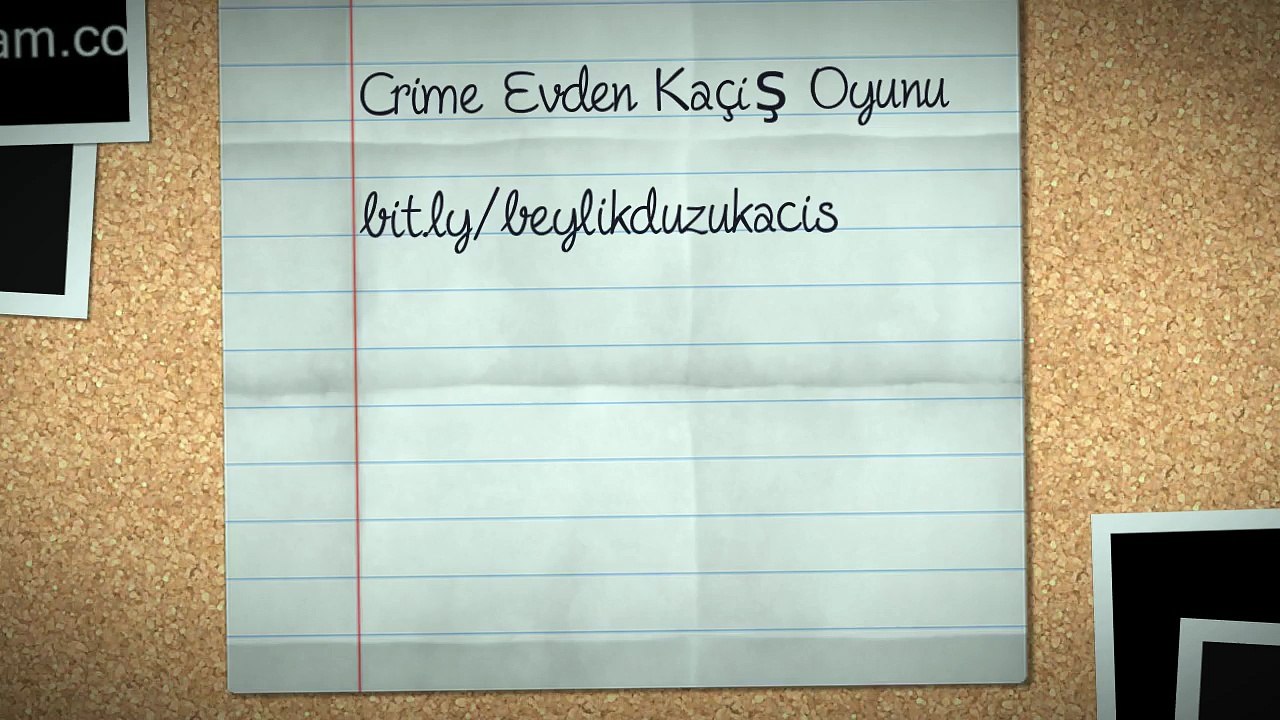 am.co
Crime Evden Kaçiş Oyunu
bit.ly/beylikduzukacis